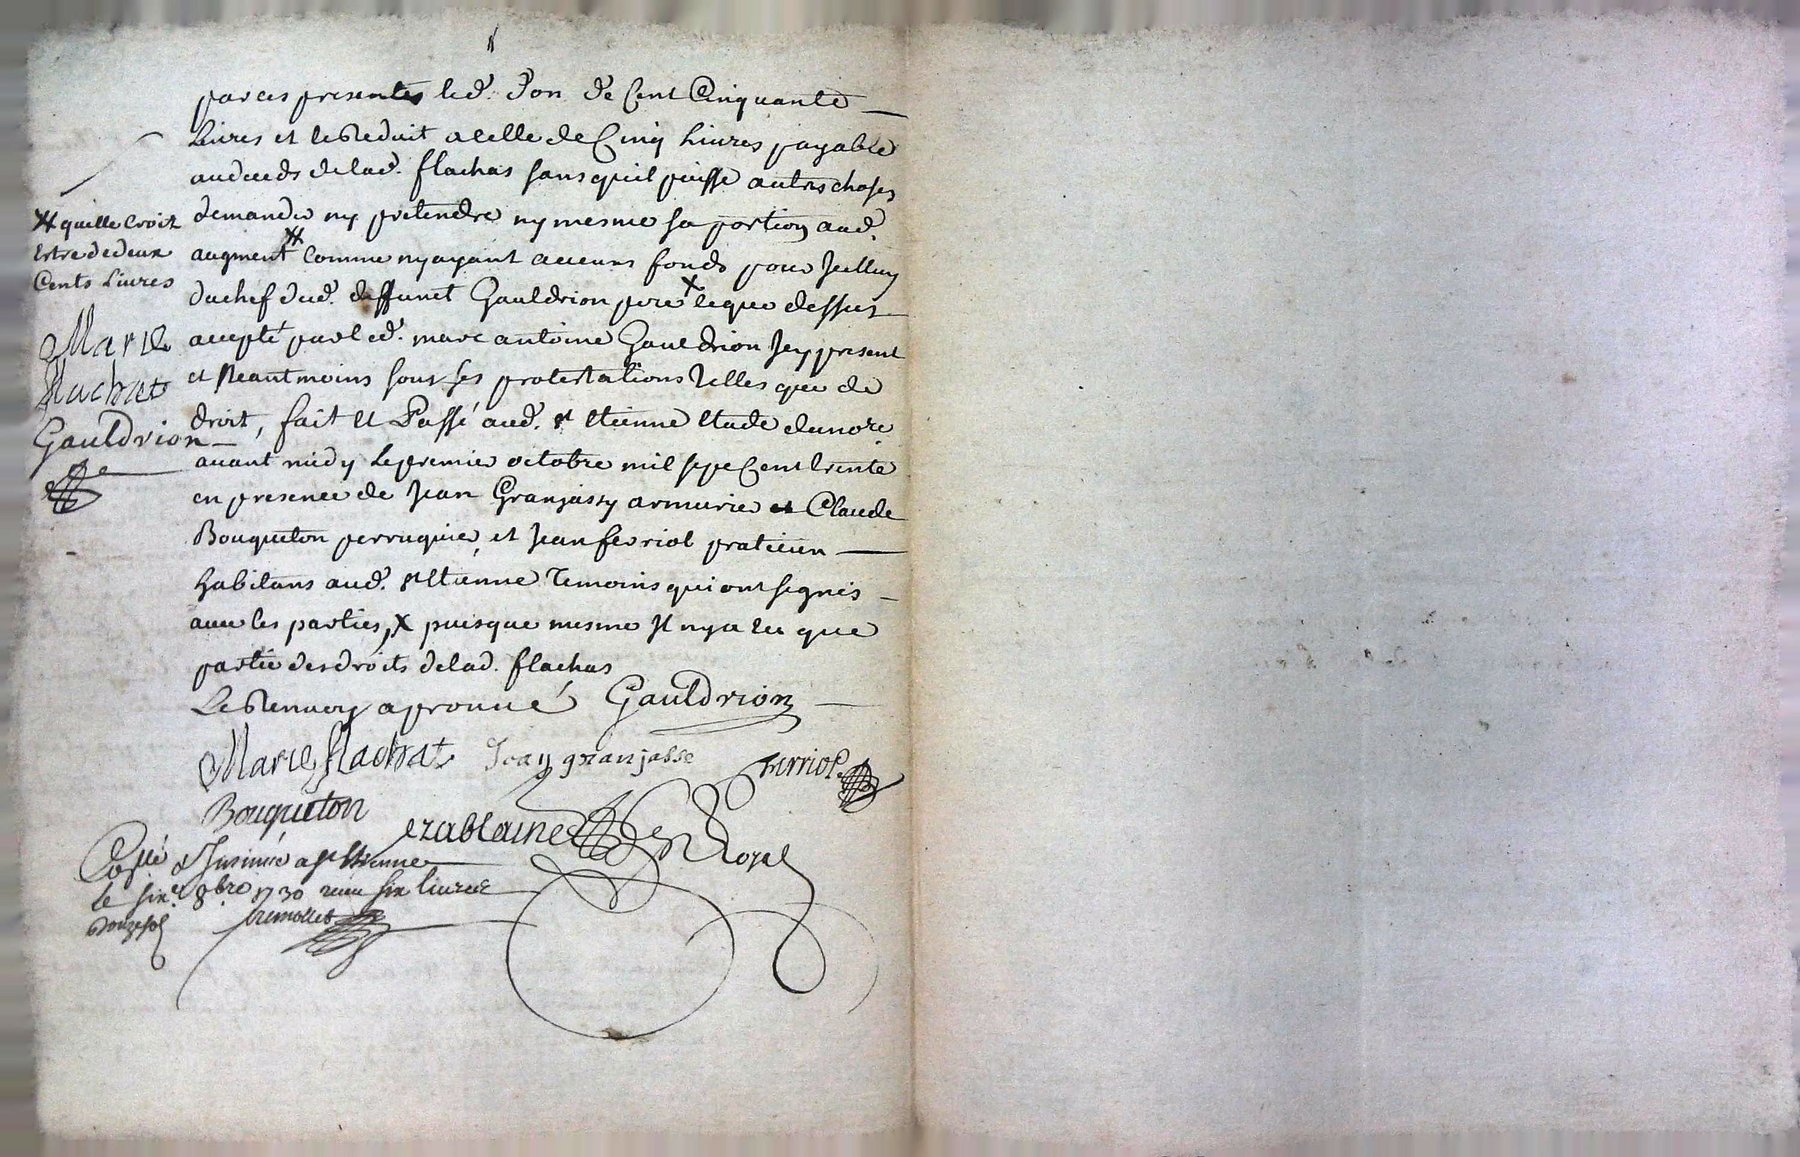 par ces presentes led. don de Cent Cinquante
Livres et le Reduit a celle de Cinq Livres payable
au deceds de lad. flachas sans quil puisse autres choses
demander ny pretendre ny mesme sa portion aud.
augment # Comme nyayant aucuns fonds pour Jcelluy
du chef dud. deffunct Gauldrion pere X le que dessus
accepté par led. marc antoine Gauldrion Jcy present
et Neantmoins sous ses protestations telles que de
droit, fait et Passé aud. st etienne etude du nore.
avant midy le premier octobre mil sept Cent trente
en presence de Jean Granjassy armurier et Claude
Bouqueton perruquier et Jean ferriol praticien
habitans aud. st Etienne temoins qui ont signés
avec les parties, X puisque mesme Jl nya eu que
partie des droits de lad. flachas
# quelle Croit
Estre de deux
Cents Livres
Marie
flachat
Gauldrion
Le Renvoy aprouvé Gauldrion
Marie flachat Jean granjasse ferriol
Bouqueton ezablaine Royal
Collé & Insinué a st Etienne
le six e 8bre 1730 receu six livres
douze sol tremollet